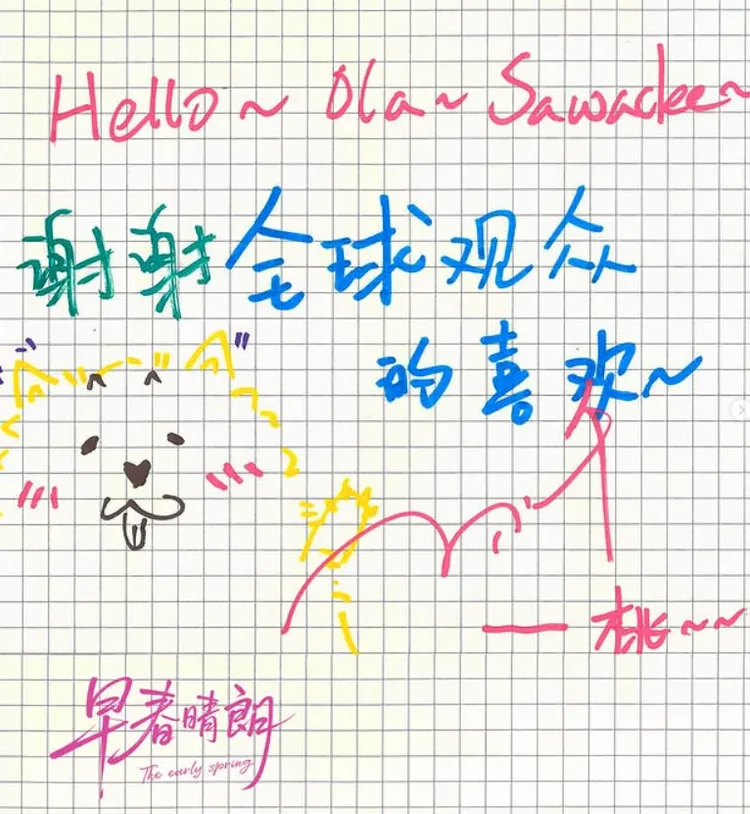 Hello~ Ola~ Sawadee~
谢谢全球观众
的喜欢~
—桃~~
早春晴朗
The early spring